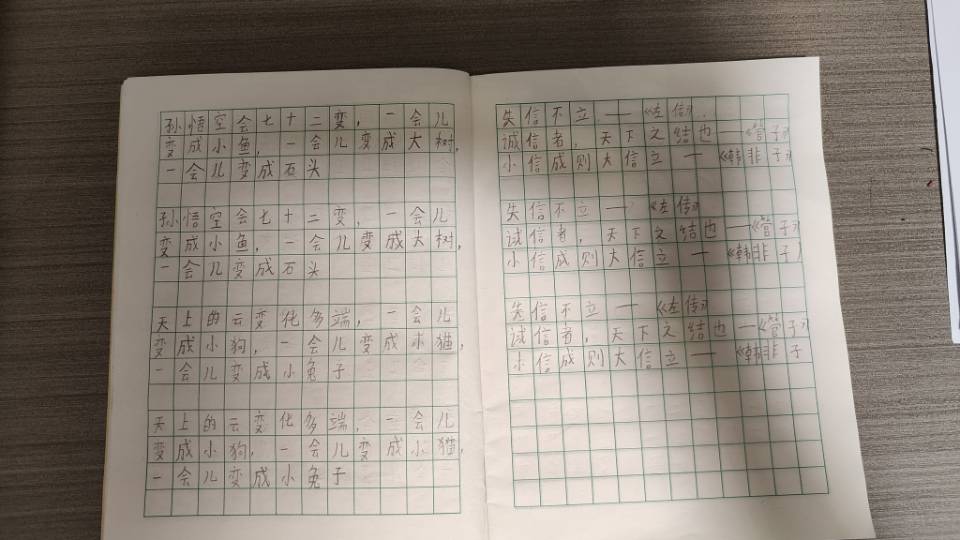 孙悟空会七十二变，一会儿
变成小鱼，一会儿变成大树，
一会儿变成石头
孙悟空会七十二变，一会儿
变成小鱼，一会儿变成大树，
一会儿变成石头
天上的云变化多端，一会儿
变成小狗，一会儿变成小猫，
一会儿变成小兔子
天上的云变化多端，一会儿
变成小狗，一会儿变成小猫，
一会儿变成小兔子
失信不立——《左传》.
诚信者，天下之结也——《管子》
小信成则大信立——《韩非子》
失信不立——《左传》
诚信者，天下之结也——《管子》
小信成则大信立——《韩非子》
失信不立——《左传》
诚信者，天下之结也——《管子》
小信成则大信立——《韩非子